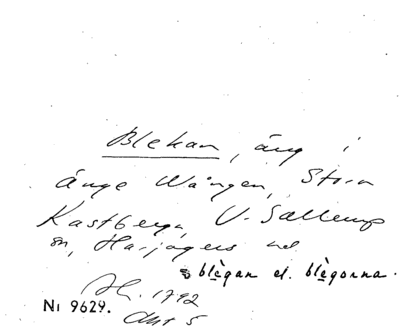 Blekan, äng i
änge Wången, Stora
Kastberga, V. Sallerup
sn, Harjagers hd
blègan el. blègorna.
1792
Akt 5
Nı 9629.